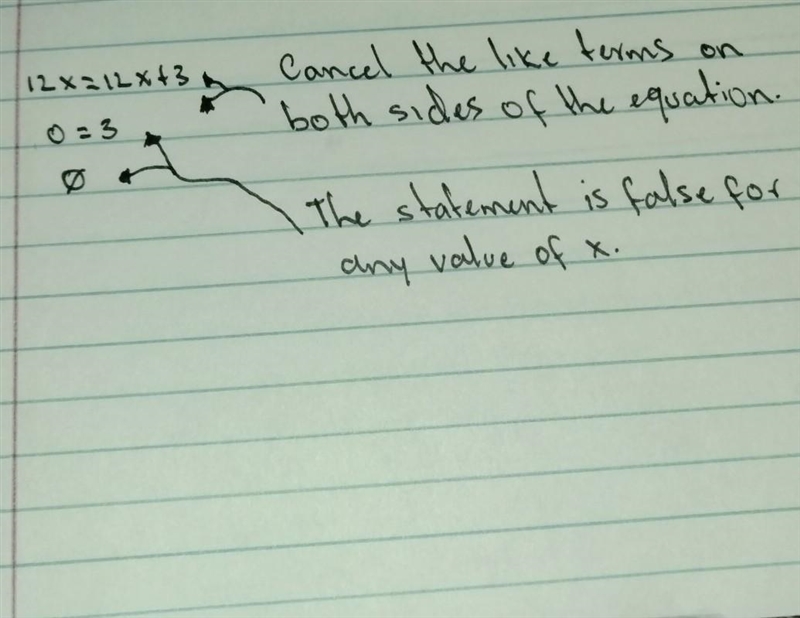 12x=12x+3
Cancel the like terms on
both sides of the equation.
0=3
Ø
The statement is false for
any value of x.